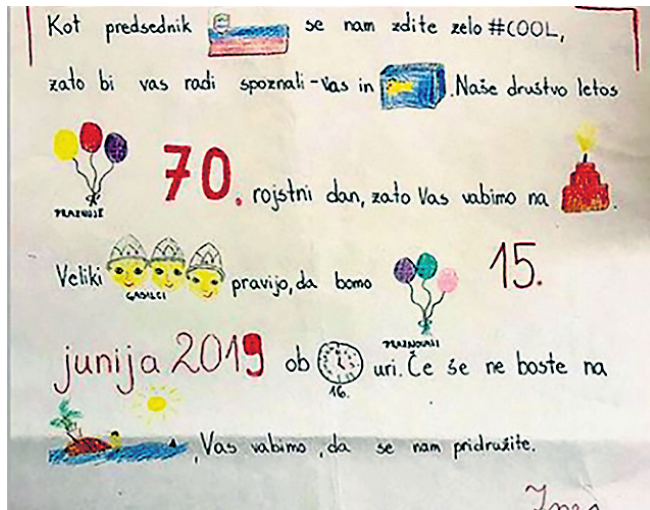 Kot predsednik se nam zdite zelo #COOL,
zato bi vas radi spoznali - Vas in . Naše društvo letos
PRAZNUJE 70. rojstni dan, zato Vas vabimo na .
Veliki GASILCI pravijo, da bomo PRAZNOVALI 15.
junija 2019 ob 16. uri. Če še ne boste na
, Vas vabimo, da se nam pridružite.